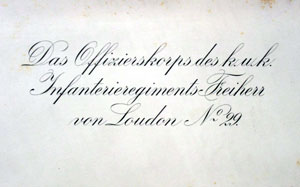 Das Offizierskorps des k. u. k.
Infanterieregiments-Freiherr
von Loudon No 29.